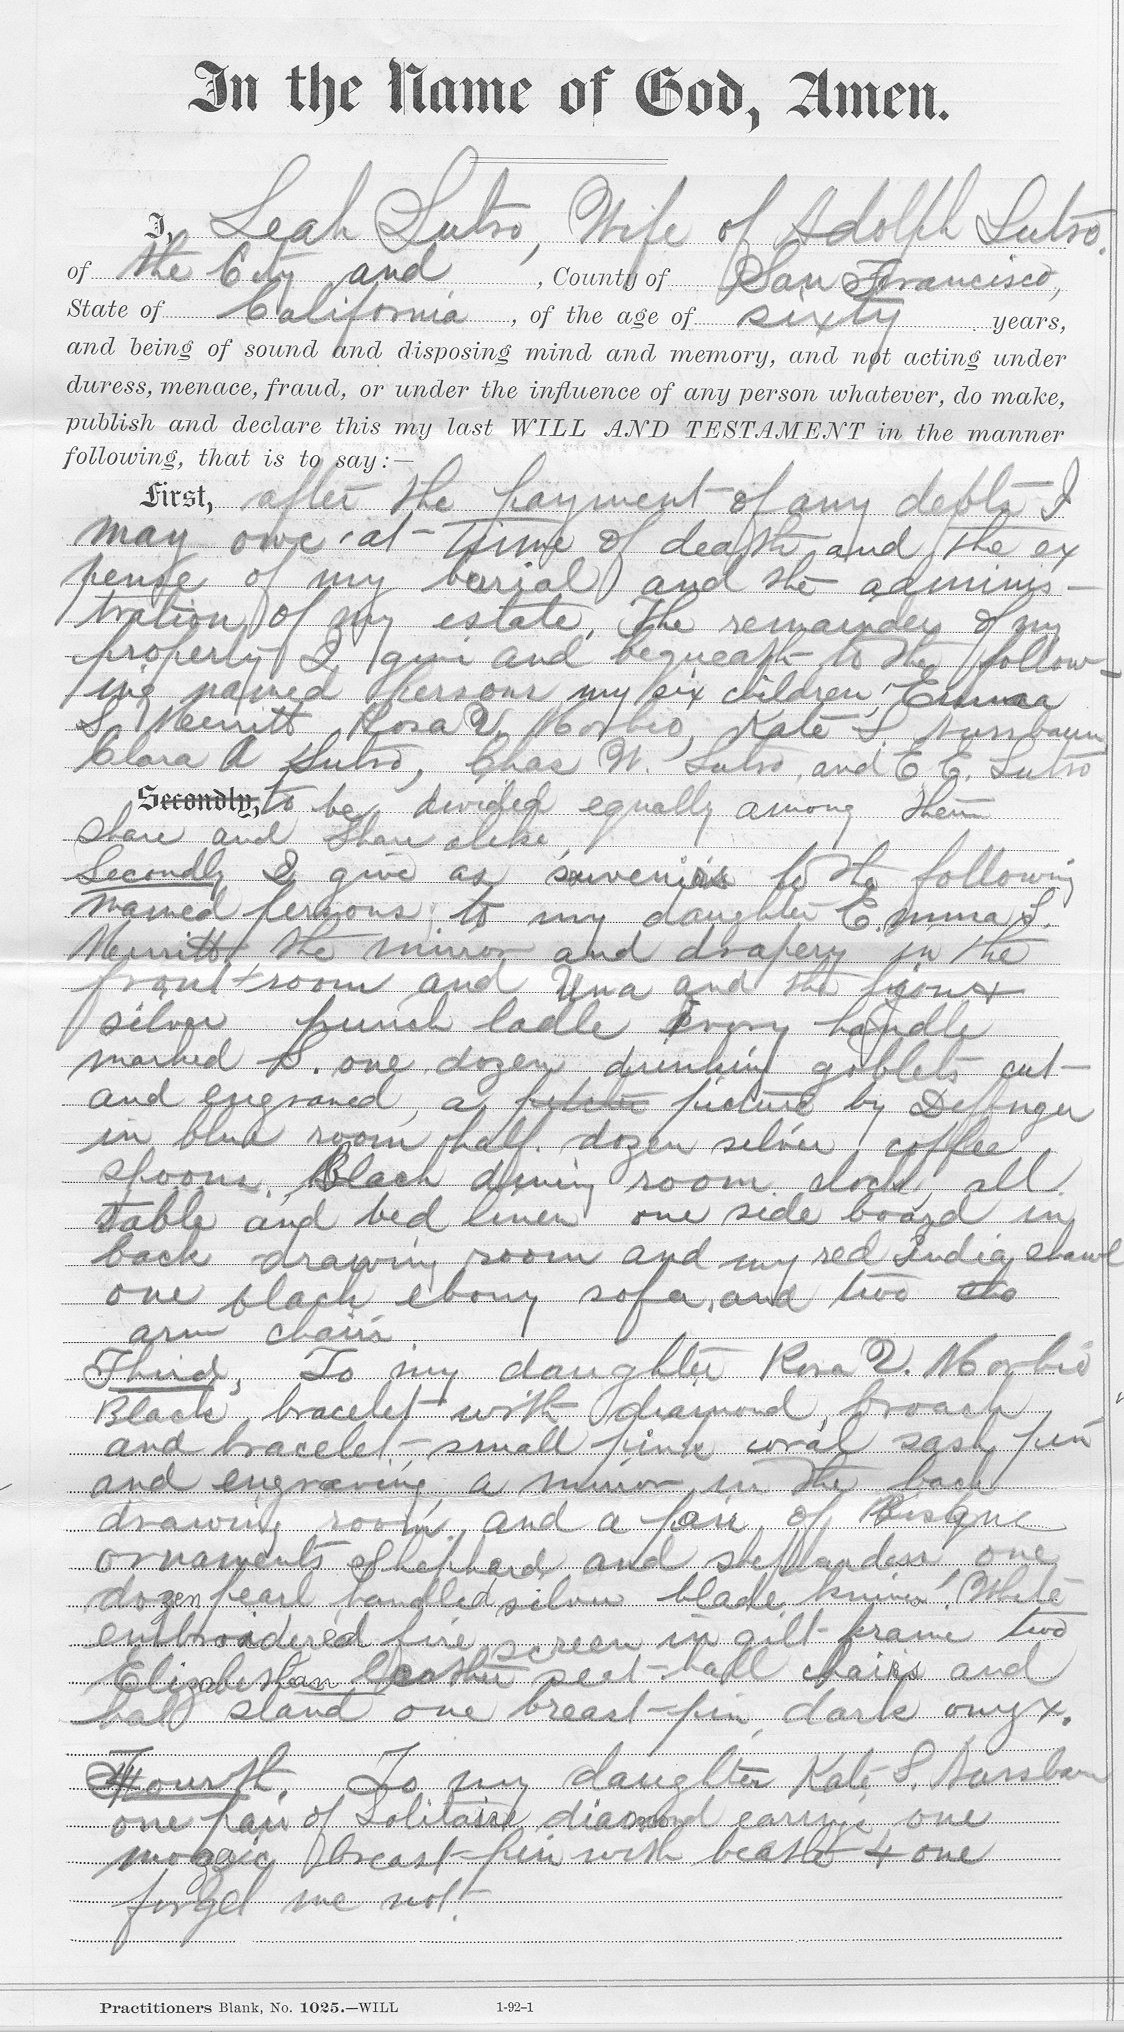 In the Name of God, Amen.
I, Leah Sutro, Wife of Adolph Sutro.
of the City and , County of San Francisco,
State of California , of the age of sixty years,
and being of sound and disposing mind and memory, and not acting under
duress, menace, fraud, or under the influence of any person whatever, do make,
publish and declare this my last WILL AND TESTAMENT in the manner
following, that is to say:—
First, after the payment of any debts I
may owe at time of death and the ex
pense of my burial and the adminis-
tration of my estate, The remainder of my
property I give and bequeath to the follow-
ing named persons my six children, Emma
S. Merritt Rosa V. Morbio, Kate S. Nussbaum
Clara A Sutro, Chas W. Sutro, and E E. Sutro
Secondly, to be divided equally among them
share and share alike,
Secondly I give as souvenirs to the following
named persons to my daughter Emma S.
Merritt the mirror and drapery in the
front room and Una and the
silver punch ladle Ivory handle
marked S. one dozen drinking goblets cut
and engraved, a picture by Deffnger
in blue room half dozen silver coffee
spoons. Black dining room clock, all
table and bed linen one side board in
back drawing room and my red India shawl
one black ebony sofa, and two
arm chairs
Third, To my daughter Rosa V. Morbio
Black bracelet with diamond, broach
and bracelet small pink coral sash pin
and engraving a mirror in the back
drawing room, and a pair of Bisque
ornaments Shephard and shephardess one
dozen pearl handled silver blade knives. White
embroidered fire screen in gilt frame two
Elizabethan leather seet hall chairs and
hall stand one breast-pin dark onyx.
Fourth. To my daughter Kate S. Nussbaum
one pair of Solitaire diamond earings one
mosaic breast-pin with beasts + one
forget me not.
Practitioners Blank, No. 1025.—WILL 1-92-1